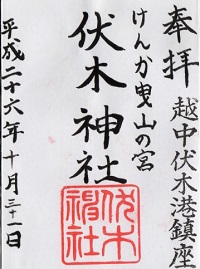 奉拝
越中伏木港鎮座
けんか曳山の宮
伏木神社
伏木神社
平成二十六年十月三十一日